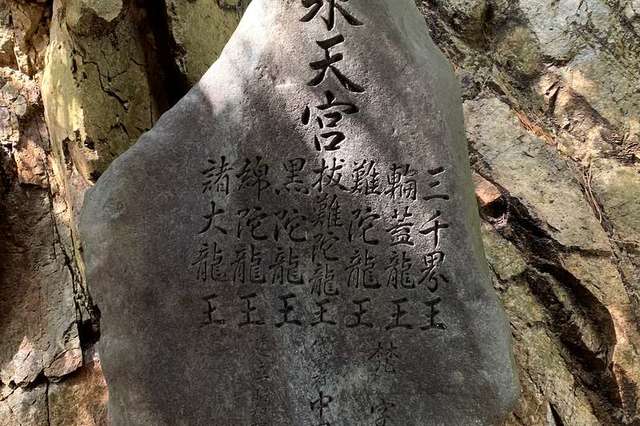 水天宮
三千界王
輪蓋龍王
難陀龍王
拔難陀龍王
黒陀龍王
綿陀龍王
諸大龍王